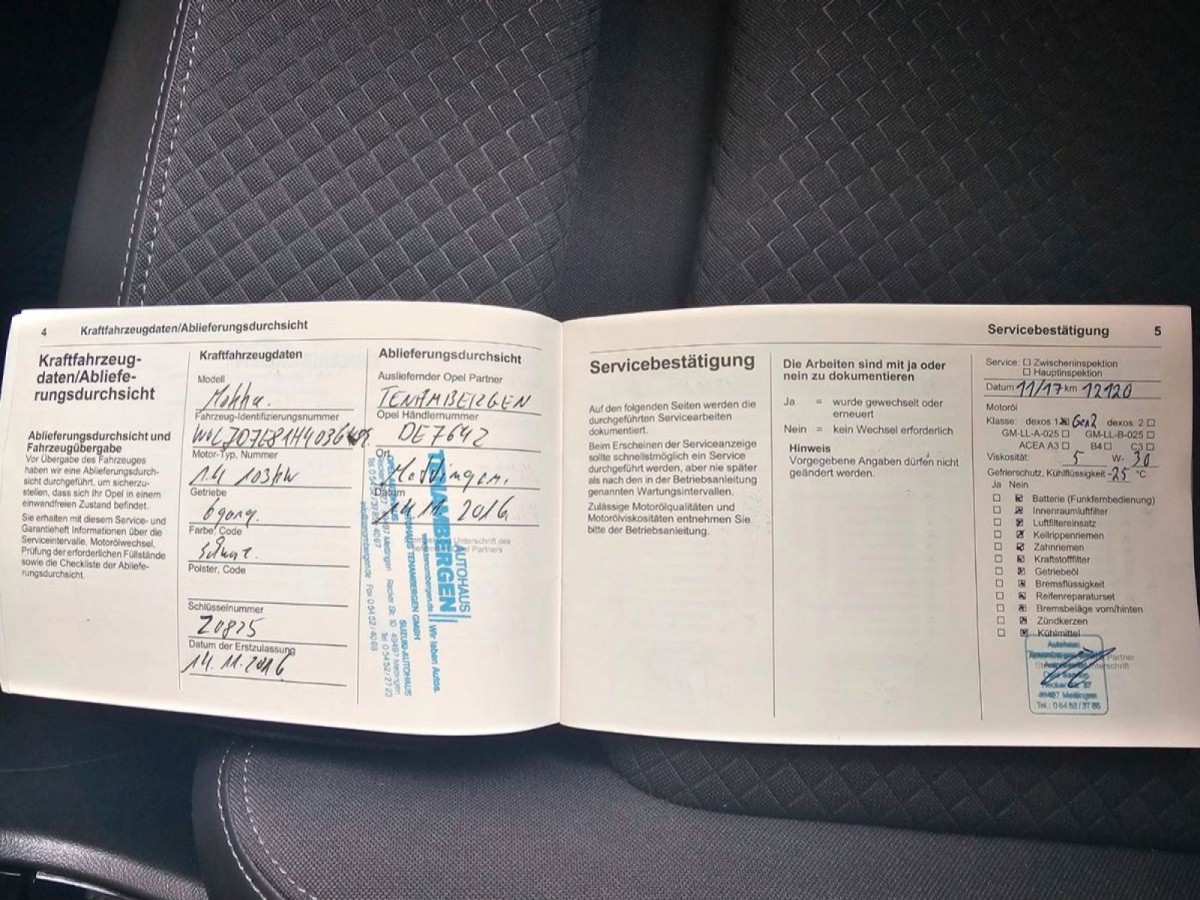 4 Kraftfahrzeugdaten/Ablieferungsdurchsicht
Kraftfahrzeug-
daten/Abliefe-
rungsdurchsicht
Ablieferungsdurchsicht und
Fahrzeugübergabe
Vor Übergabe des Fahrzeuges
haben wir eine Ablieferungsdurch-
sicht durchgeführt, um sicherzu-
stellen, dass sich Ihr Opel in einem
einwandfreien Zustand befindet.
Sie erhalten mit diesem Service- und
Garantieheft Informationen über die
Serviceintervalle, Motorölwechsel,
Prüfung der erforderlichen Füllstände
sowie die Checkliste der Abliefe-
rungsdurchsicht.
Kraftfahrzeugdaten
Modell
Mokka
Fahrzeug-Identifizierungsnummer
Motor-Typ, Nummer
1.4 103KW
Getriebe
6gang.
Farbe, Code
Polster, Code
Schlüsselnummer
Z0825
Datum der Erstzulassung
14.11.2016
Ablieferungsdurchsicht
Ausliefernder Opel Partner
TENAMBERGEN
Opel Händlernummer
DE7642
Ort
Mettingen
Datum
14.11.2016
Unterschrift des
Opel Partners
AUTOHAUS
TENAMBERGEN
Wir leben Autos.
AUTOHAUS TENAMBERGEN GMBH
SUZUKI-AUTOHAUS
Recker Str. 10 49497 Mettingen
Servicebestätigung 5
Servicebestätigung
Auf den folgenden Seiten werden die
durchgeführten Servicearbeiten
dokumentiert.
Beim Erscheinen der Serviceanzeige
sollte schnellstmöglich ein Service
durchgeführt werden, aber nie später
als nach den in der Betriebsanleitung
genannten Wartungsintervallen.
Zulässige Motorölqualitäten und
Motorölviskositäten entnehmen Sie
bitte der Betriebsanleitung.
Die Arbeiten sind mit ja oder
nein zu dokumentieren
Ja = wurde gewechselt oder
erneuert
Nein = kein Wechsel erforderlich
Hinweis
Vorgegebene Angaben dürfen nicht
geändert werden.
Service: ☐ Zwischeninspektion
☐ Hauptinspektion
Datum 11/17 km 12120
Motoröl
Klasse: dexos 1 ☒ Gen2 dexos 2 ☐
GM-LL-A-025 ☐ GM-LL-B-025 ☐
ACEA A3 ☐ B4 ☐ C3 ☐
Viskosität: 5 W- 30
Gefrierschutz, Kühlflüssigkeit -25 °C
Ja Nein
☐ ☒ Batterie (Funkfernbedienung)
☐ ☒ Innenraumluftfilter
☐ ☒ Luftfiltereinsatz
☐ ☒ Keilrippenriemen
☐ ☒ Zahnriemen
☐ ☒ Kraftstofffilter
☐ ☒ Getriebeöl
☐ ☒ Bremsflüssigkeit
☐ ☒ Reifenreparaturset
☐ ☒ Bremsbeläge vorn/hinten
☐ ☒ Zündkerzen
☐ ☒ Kühlmittel
Autohaus
Partner
49497 Mettingen